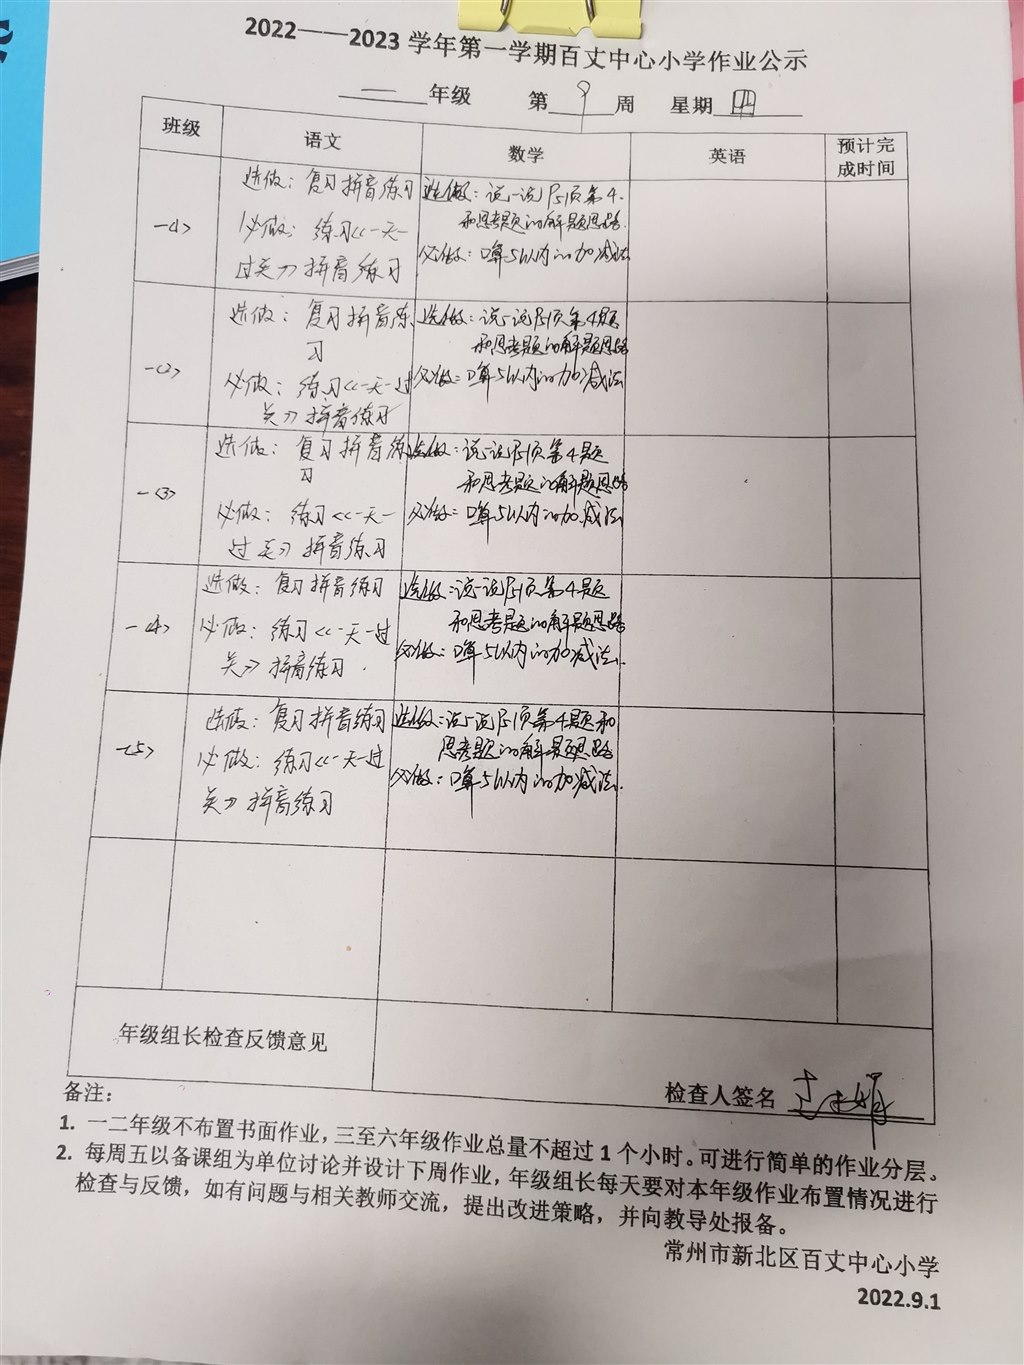 2022——2023 学年第一学期百丈中心小学作业公示
一 年级 第 9 周 星期 四
班级 语文 数学 英语 预计完成时间
一<1>
选做：复习拼音练习
必做：练习<<一天一
过关>>拼音练习
选做：说一说P51页第4.
和思考题的解题思路
必做：口算5以内的加减法
一<2>
选做：复习拼音练
习
必做：练习<<一天一过
关>>拼音练习
选做：说一说P51页第4题
和思考题的解题思路
必做：口算5以内的加减法
一<3>
选做：复习拼音练
习
必做：练习<<一天一
过关>>拼音练习
选做：说一说P51页第4题
和思考题的解题思路
必做：口算5以内的加减法
一<4>
选做：复习拼音练习
必做：练习<<一天一过
关>>拼音练习.
选做：说一说P51页第4题
和思考题的解题思路
必做：口算5以内的加减法.
一<5>
选做：复习拼音练习
必做：练习<<一天一过
关>>拼音练习
选做：说一说P51页第4题和
思考题的解题思路
必做：口算5以内的加减法.
年级组长检查反馈意见
检查人签名
备注：
1. 一二年级不布置书面作业，三至六年级作业总量不超过 1 个小时。可进行简单的作业分层。
2. 每周五以备课组为单位讨论并设计下周作业，年级组长每天要对本年级作业布置情况进行
检查与反馈，如有问题与相关教师交流，提出改进策略，并向教导处报备。
常州市新北区百丈中心小学
2022.9.1